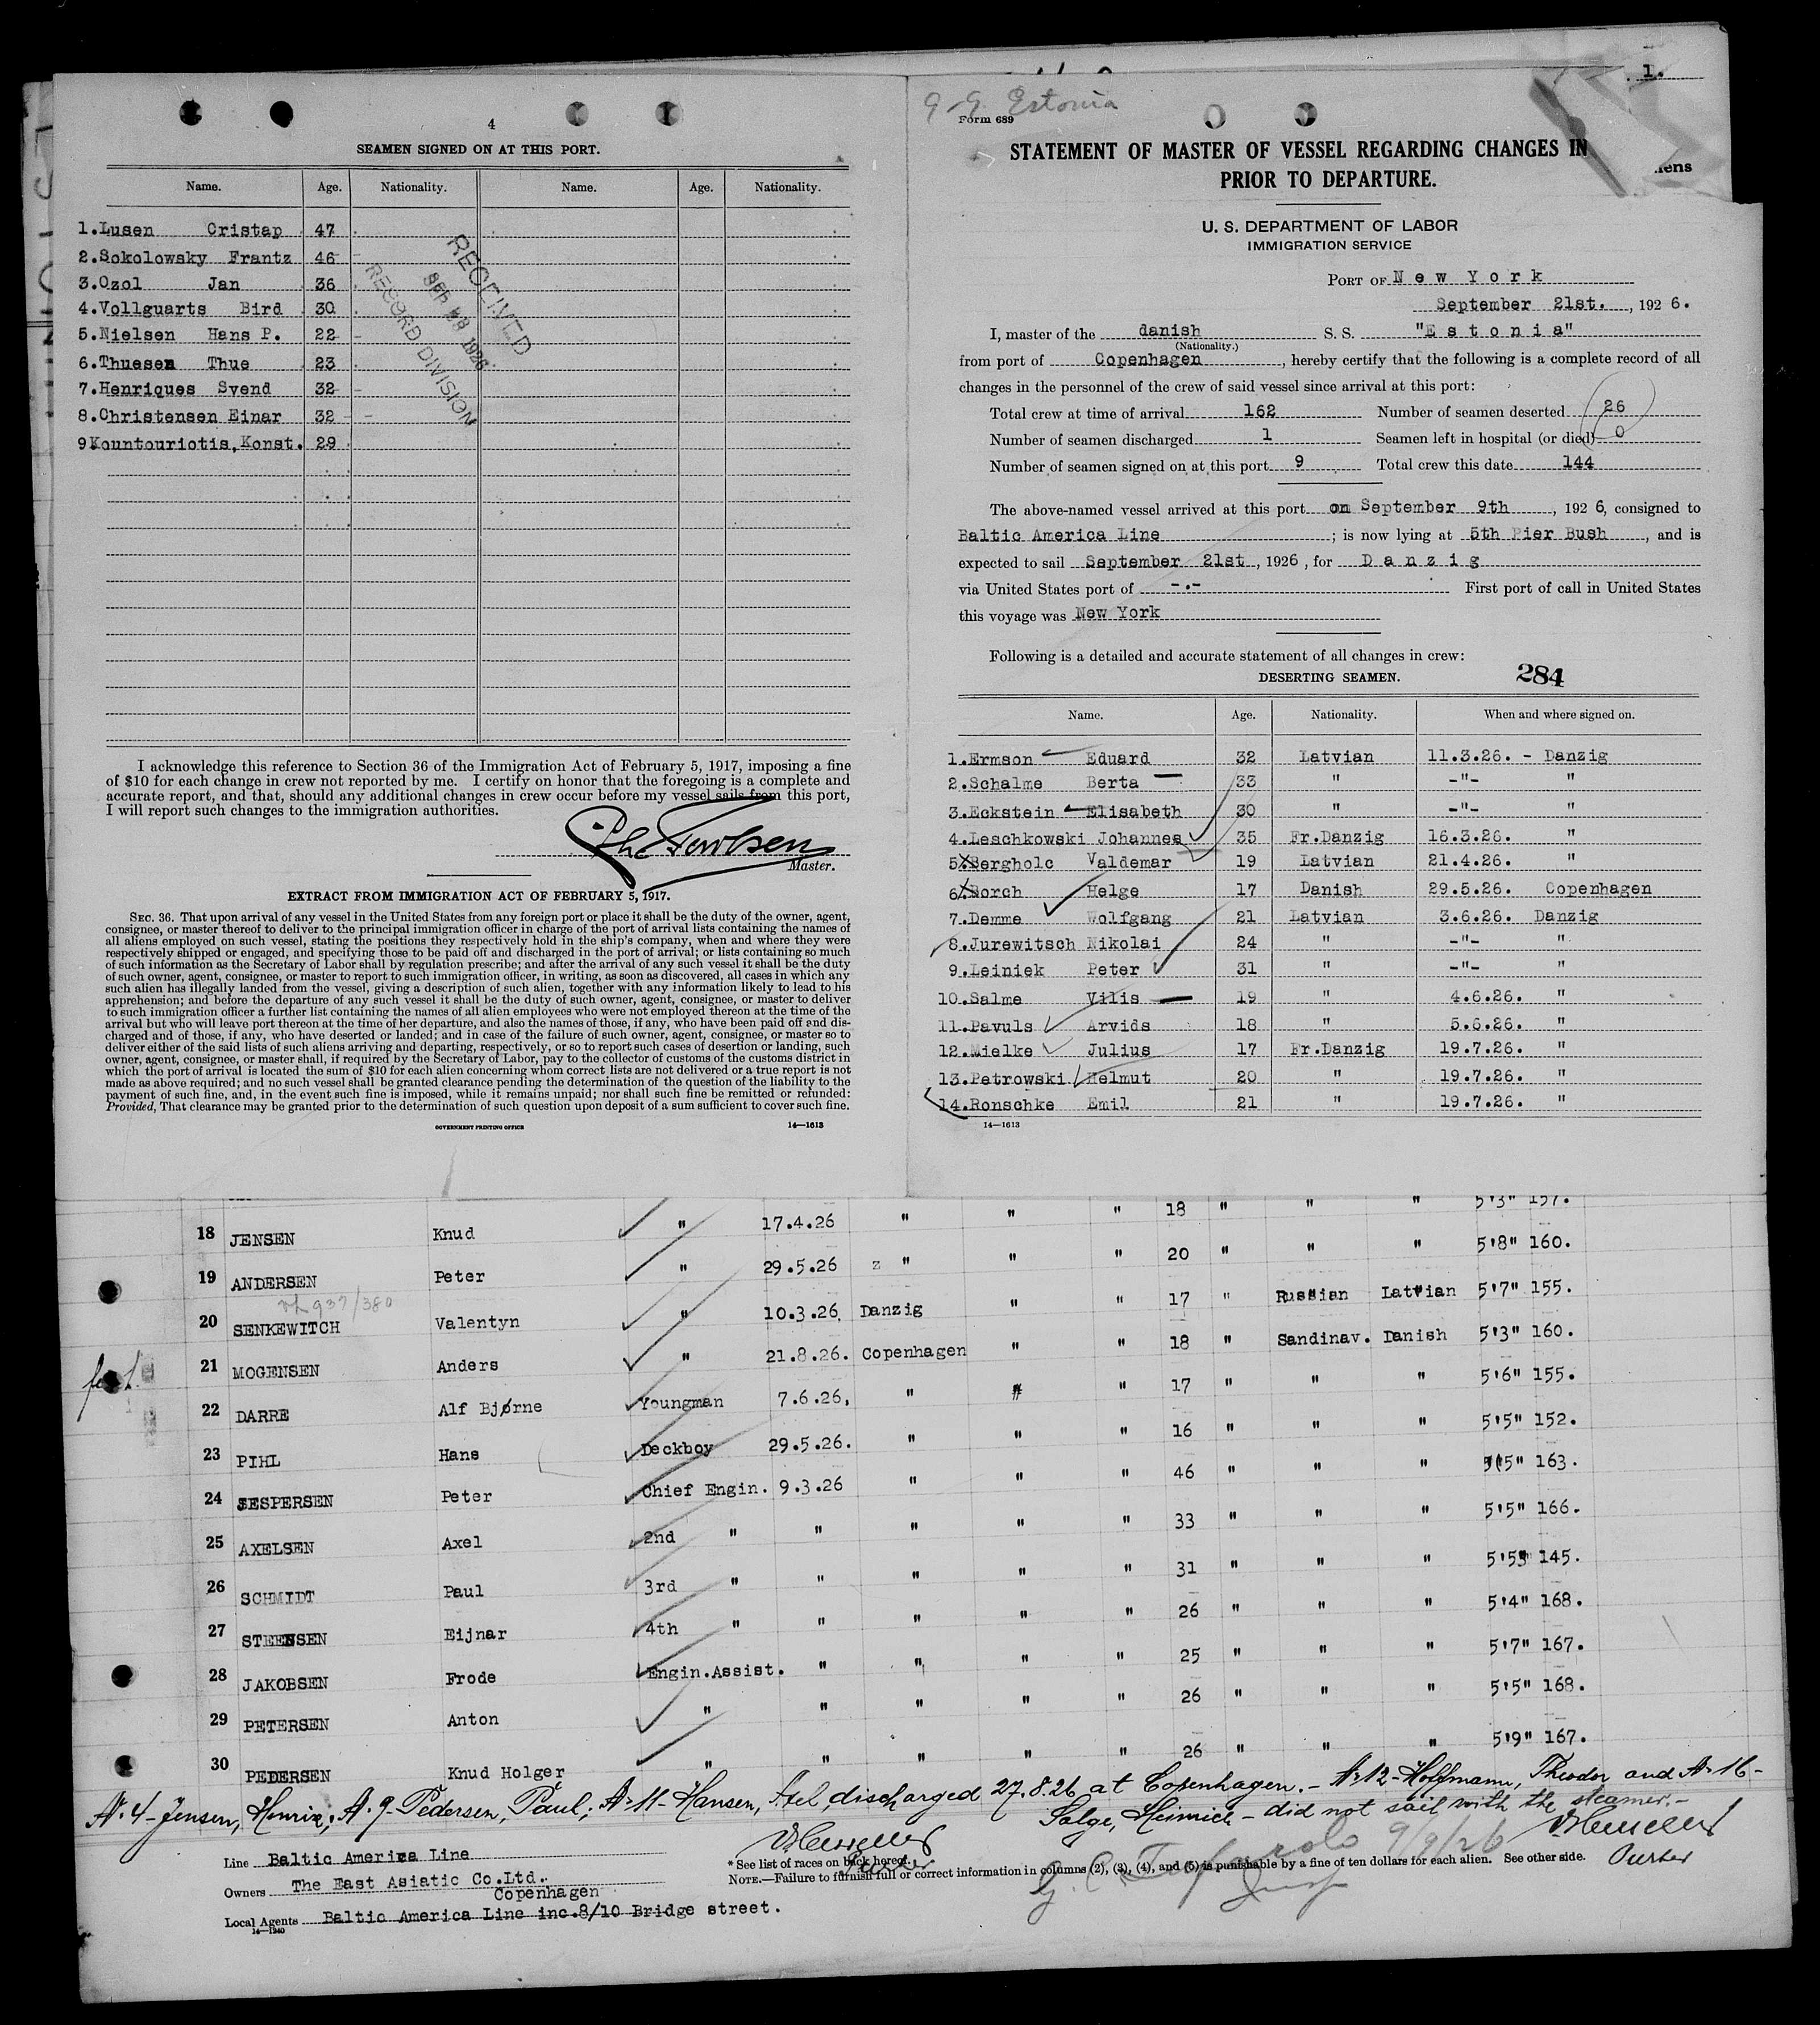 4
SEAMEN SIGNED ON AT THIS PORT.
Name. Age. Nationality. Name. Age. Nationality.
1.Lusen Cristap 47
2.Sokolowsky Frantz 46
3.Ozol Jan 36
4.Vollguarts Bird 30
5.Nielsen Hans P. 22
6.Thuesen Thue 23
7.Henriques Svend 32
8.Christensen Einar 32
9Kountouriotis,Konst. 29
RECEIVED
1926
RECORD DIVISION
I acknowledge this reference to Section 36 of the Immigration Act of February 5, 1917, imposing a fine
of $10 for each change in crew not reported by me. I certify on honor that the foregoing is a complete and
accurate report, and that, should any additional changes in crew occur before my vessel sails from this port,
I will report such changes to the immigration authorities.
Master.
EXTRACT FROM IMMIGRATION ACT OF FEBRUARY 5, 1917.
SEC. 36. That upon arrival of any vessel in the United States from any foreign port or place it shall be the duty of the owner, agent,
consignee, or master thereof to deliver to the principal immigration officer in charge of the port of arrival lists containing the names of
all aliens employed on such vessel, stating the positions they respectively hold in the ship's company, when and where they were
respectively shipped or engaged, and specifying those to be paid off and discharged in the port of arrival; or lists containing so much
of such information as the Secretary of Labor shall by regulation prescribe; and after the arrival of any such vessel it shall be the duty
of such owner, agent, consignee, or master to report to such immigration officer, in writing, as soon as discovered, all cases in which any
such alien has illegally landed from the vessel, giving a description of such alien, together with any information likely to lead to his
apprehension; and before the departure of any such vessel it shall be the duty of such owner, agent, consignee, or master to deliver
to such immigration officer a further list containing the names of all alien employees who were not employed thereon at the time of the
arrival but who will leave port thereon at the time of her departure, and also the names of those, if any, who have been paid off and dis-
charged and of those, if any, who have deserted or landed; and in case of the failure of such owner, agent, consignee, or master so to
deliver either of the said lists of such aliens arriving and departing, respectively, or so to report such cases of desertion or landing, such
owner, agent, consignee, or master shall, if required by the Secretary of Labor, pay to the collector of customs of the customs district in
which the port of arrival is located the sum of $10 for each alien concerning whom correct lists are not delivered or a true report is not
made as above required; and no such vessel shall be granted clearance pending the determination of the question of the liability to the
payment of such fine, and, in the event such fine is imposed, while it remains unpaid; nor shall such fine be remitted or refunded:
Provided, That clearance may be granted prior to the determination of such question upon deposit of a sum sufficient to cover such fine.
GOVERNMENT PRINTING OFFICE 14—1613
1.
9-9 Estonia
Form 689
STATEMENT OF MASTER OF VESSEL REGARDING CHANGES IN
PRIOR TO DEPARTURE.
U. S. DEPARTMENT OF LABOR
IMMIGRATION SERVICE
PORT OF New York
September 21st. , 1926.
I, master of the danish S. S. "Estonia"
(Nationality.)
from port of Copenhagen, hereby certify that the following is a complete record of all
changes in the personnel of the crew of said vessel since arrival at this port:
Total crew at time of arrival 162 Number of seamen deserted 26
Number of seamen discharged 1 Seamen left in hospital (or died) 0
Number of seamen signed on at this port 9 Total crew this date 144
The above-named vessel arrived at this port on September 9th , 1926, consigned to
Baltic America Line ; is now lying at 5th Pier Bush , and is
expected to sail September 21st , 1926 , for Danzig
via United States port of -.- First port of call in United States
this voyage was New York
Following is a detailed and accurate statement of all changes in crew:
DESERTING SEAMEN. 284
Name. Age. Nationality. When and where signed on.
1.Ermson Eduard 32 Latvian 11.3.26. - Danzig
2.Schalme Berta 33 " -"- "
3.Eckstein Elisabeth 30 " -"- "
4.Leschkowski Johannes 35 Fr.Danzig 16.3.26. "
5.Bergholc Valdemar 19 Latvian 21.4.26. "
6.Borch Helge 17 Danish 29.5.26. Copenhagen
7.Demme Wolfgang 21 Latvian 3.6.26. Danzig
8.Jurewitsch Nikolai 24 " -"- "
9.Leiniek Peter 31 " -"- "
10.Salme Vilis 19 " 4.6.26. "
11.Pavuls Arvids 18 " 5.6.26. "
12.Mielke Julius 17 Fr.Danzig 19.7.26. "
13.Petrowski Helmut 20 " 19.7.26. "
14.Ronschke Emil 21 " 19.7.26. "
14—1613
18 JENSEN Knud " 17.4.26 " " " 18 " " " 5'3" 157.
19 ANDERSEN Peter " 29.5.26 z " " " 20 " " " 5'8" 160.
20 SENKEWITCH Valentyn " 10.3.26. Danzig " " 17 " Russian Latvian 5'7" 155.
21 MOGENSEN Anders " 21.8.26. Copenhagen " " 18 " Sandinav. Danish 5'3" 160.
22 DARRE Alf Bjørne Youngman 7.6.26, " " " 17 " " " 5'6" 155.
23 PIHL Hans Deckboy 29.5.26. " " " 16 " " " 5'5" 152.
24 JESPERSEN Peter Chief Engin. 9.3.26 " " " 46 " " " 5'5" 163.
25 AXELSEN Axel 2nd " " " " " 33 " " " 5'5" 166.
26 SCHMIDT Paul 3rd " " " " " 31 " " " 5'5" 145.
27 STEENSEN Eijnar 4th " " " " " 26 " " " 5'4" 168.
28 JAKOBSEN Frode Engin.Assist. " " " " 25 " " " 5'7" 167.
29 PETERSEN Anton " " " " " 26 " " " 5'5" 168.
30 PEDERSEN Knud Holger " " " " " 26 " " " 5'9" 167.
№ 4-Jensen, Henrix; № 9-Pedersen, Paul; № 11-Hansen, Axel, discharged 27.8.26 at Copenhagen.- № 12-Hoffmann, Theodor and № 16-
Salge, Heinrich - did not sail with the steamer.-
Purser
Line Baltic America Line
Owners The East Asiatic Co.Ltd.
Copenhagen
Local Agents Baltic America Line inc.8/10 Bridge street.
14—1240
* See list of races on back hereof.
NOTE.—Failure to furnish full or correct information in columns (2), (3), (4), and (5) is punishable by a fine of ten dollars for each alien. See other side.
9/9/26